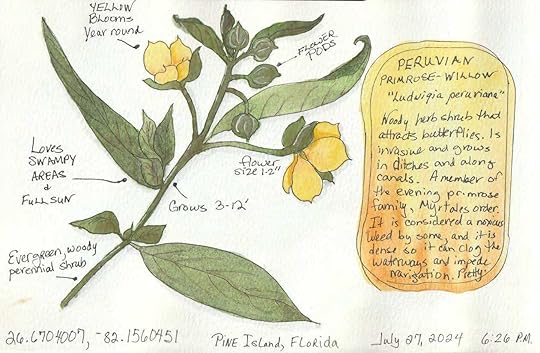 YELLOW
BLOOMS
Year round
FLOWER
PODS
PERUVIAN
PRIMROSE-WILLOW
"Ludwigia peruviana"
Woody herb shrub that
attracts butterflies. Is
invasive and grows
in ditches and along
canals. A member of
the evening primrose
family, Myrtales order.
It is considered a noxious
weed by some, and it is
dense so it can clog the
waterways and impede
navigation. Pretty.
LOVES
SWAMPY
AREAS
&
FULL SUN
flower
size 1-2"
Grows 3-12'
Evergreen, woody
perennial shrub
26.6704007, -82.1560451
PINE ISLAND, FLORIDA
July 27, 2024
6:26 P.M.